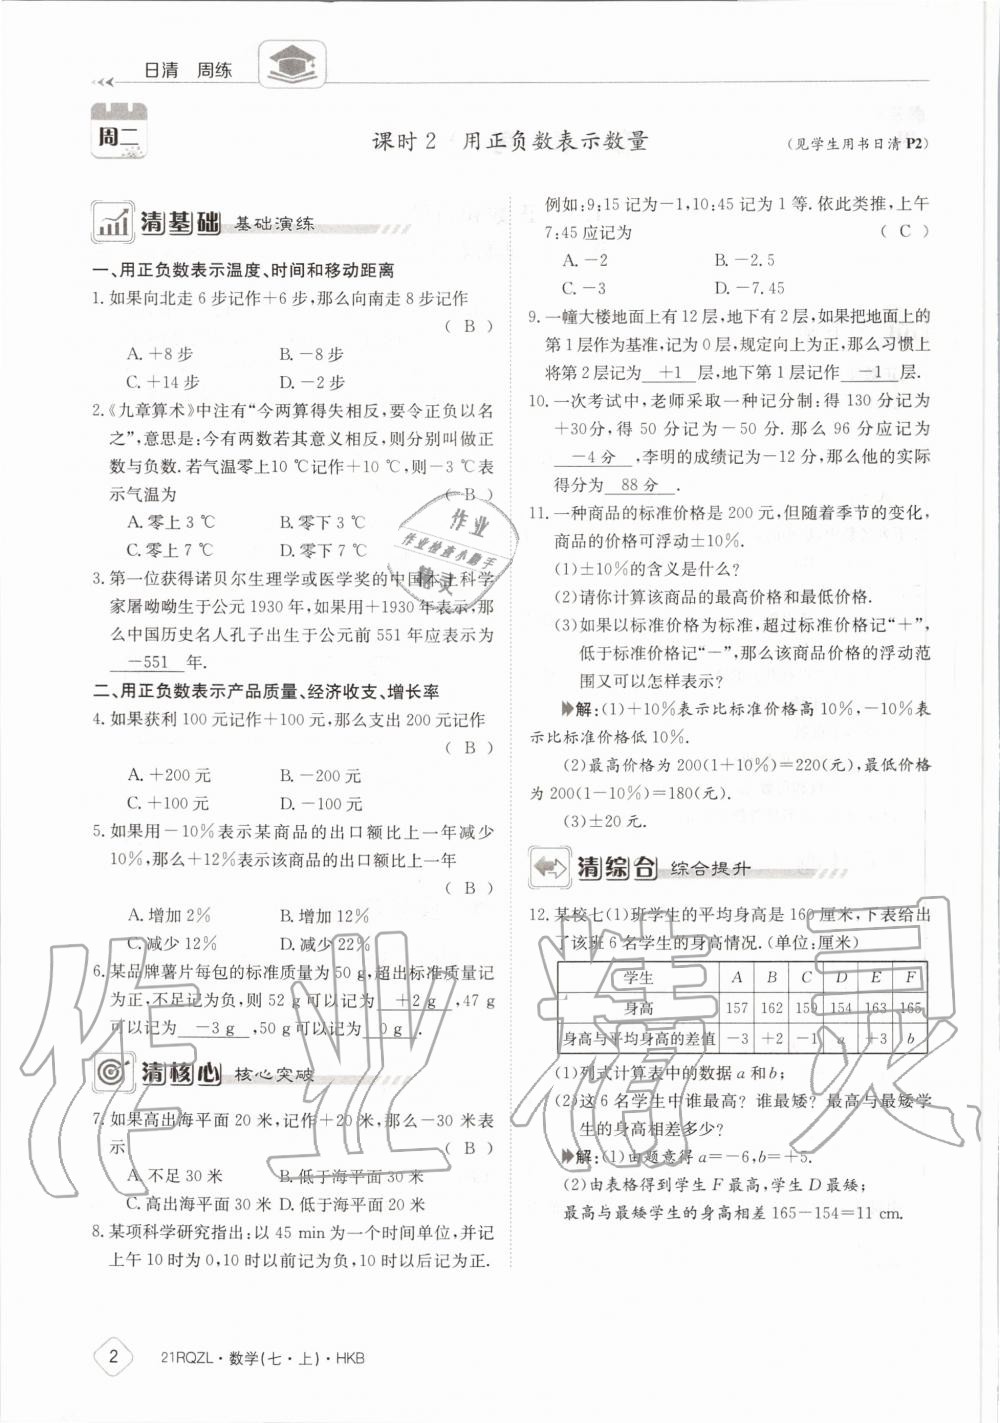 日清 周练
周二
课时2 用正负数表示数量
(见学生用书日清P2)
清基础 基础演练
一、用正负数表示温度、时间和移动距离
1. 如果向北走6步记作+6步,那么向南走8步记作
( B )
A. +8步 B. -8步
C. +14步 D. -2步
2.《九章算术》中注有“今两算得失相反,要令正负以名
之”,意思是:今有两数若其意义相反,则分别叫做正
数与负数. 若气温零上10 ℃记作+10 ℃,则-3 ℃表
示气温为 ( B )
A. 零上3 ℃ B. 零下3 ℃
C. 零上7 ℃ D. 零下7 ℃
3. 第一位获得诺贝尔生理学或医学奖的中国本土科学
家屠呦呦生于公元1930年,如果用+1930年表示,那
么中国历史名人孔子出生于公元前551年应表示为
-551 年.
二、用正负数表示产品质量、经济收支、增长率
4. 如果获利100元记作+100元,那么支出200元记作
( B )
A. +200元 B. -200元
C. +100元 D. -100元
5. 如果用-10%表示某商品的出口额比上一年减少
10%,那么+12%表示该商品的出口额比上一年
( B )
A. 增加2% B. 增加12%
C. 减少12% D. 减少22%
6. 某品牌薯片每包的标准质量为50 g,超出标准质量记
为正,不足记为负,则52 g可以记为 +2 g ,47 g
可以记为 -3 g ,50 g可以记为 0 g .
清核心 核心突破
7. 如果高出海平面20米,记作+20米,那么-30米表
示 ( B )
A. 不足30米 B. 低于海平面30米
C. 高出海平面30米 D. 低于海平面20米
8. 某项科学研究指出:以45 min为一个时间单位,并记
上午10时为0,10时以前记为负,10时以后记为正.
例如:9:15记为-1,10:45记为1等. 依此类推,上午
7:45应记为 ( C )
A. -2 B. -2.5
C. -3 D. -7.45
9. 一幢大楼地面上有12层,地下有2层,如果把地面上的
第1层作为基准,记为0层,规定向上为正,那么习惯上
将第2层记为 +1 层,地下第1层记作 -1 层.
10. 一次考试中,老师采取一种记分制:得130分记为
+30分,得50分记为-50分. 那么96分应记为
-4分 ,李明的成绩记为-12分,那么他的实际
得分为 88分 .
11. 一种商品的标准价格是200元,但随着季节的变化,
商品的价格可浮动±10%.
(1)±10%的含义是什么?
(2)请你计算该商品的最高价格和最低价格.
(3)如果以标准价格为标准,超过标准价格记“+”,
低于标准价格记“-”,那么该商品价格的浮动范
围又可以怎样表示?
解:(1)+10%表示比标准价格高10%,-10%表
示比标准价格低10%.
(2)最高价格为200(1+10%)=220(元),最低价格
为200(1-10%)=180(元).
(3)±20元.
清综合 综合提升
12. 某校七(1)班学生的平均身高是160厘米,下表给出
了该班6名学生的身高情况.(单位:厘米)
学生 A B C D E F
身高 157 162 159 154 163 165
身高与平均身高的差值 -3 +2 -1 a +3 b
(1)列式计算表中的数据a和b;
(2)这6名学生中谁最高?谁最矮?最高与最矮学
生的身高相差多少?
解:(1)由题意得a=-6,b=+5.
(2)由表格得到学生F最高,学生D最矮;
最高与最矮学生的身高相差165-154=11 cm.
2 21RQZL·数学(七·上)·HKB
作业
作业检查小助手
精灵
作业精灵